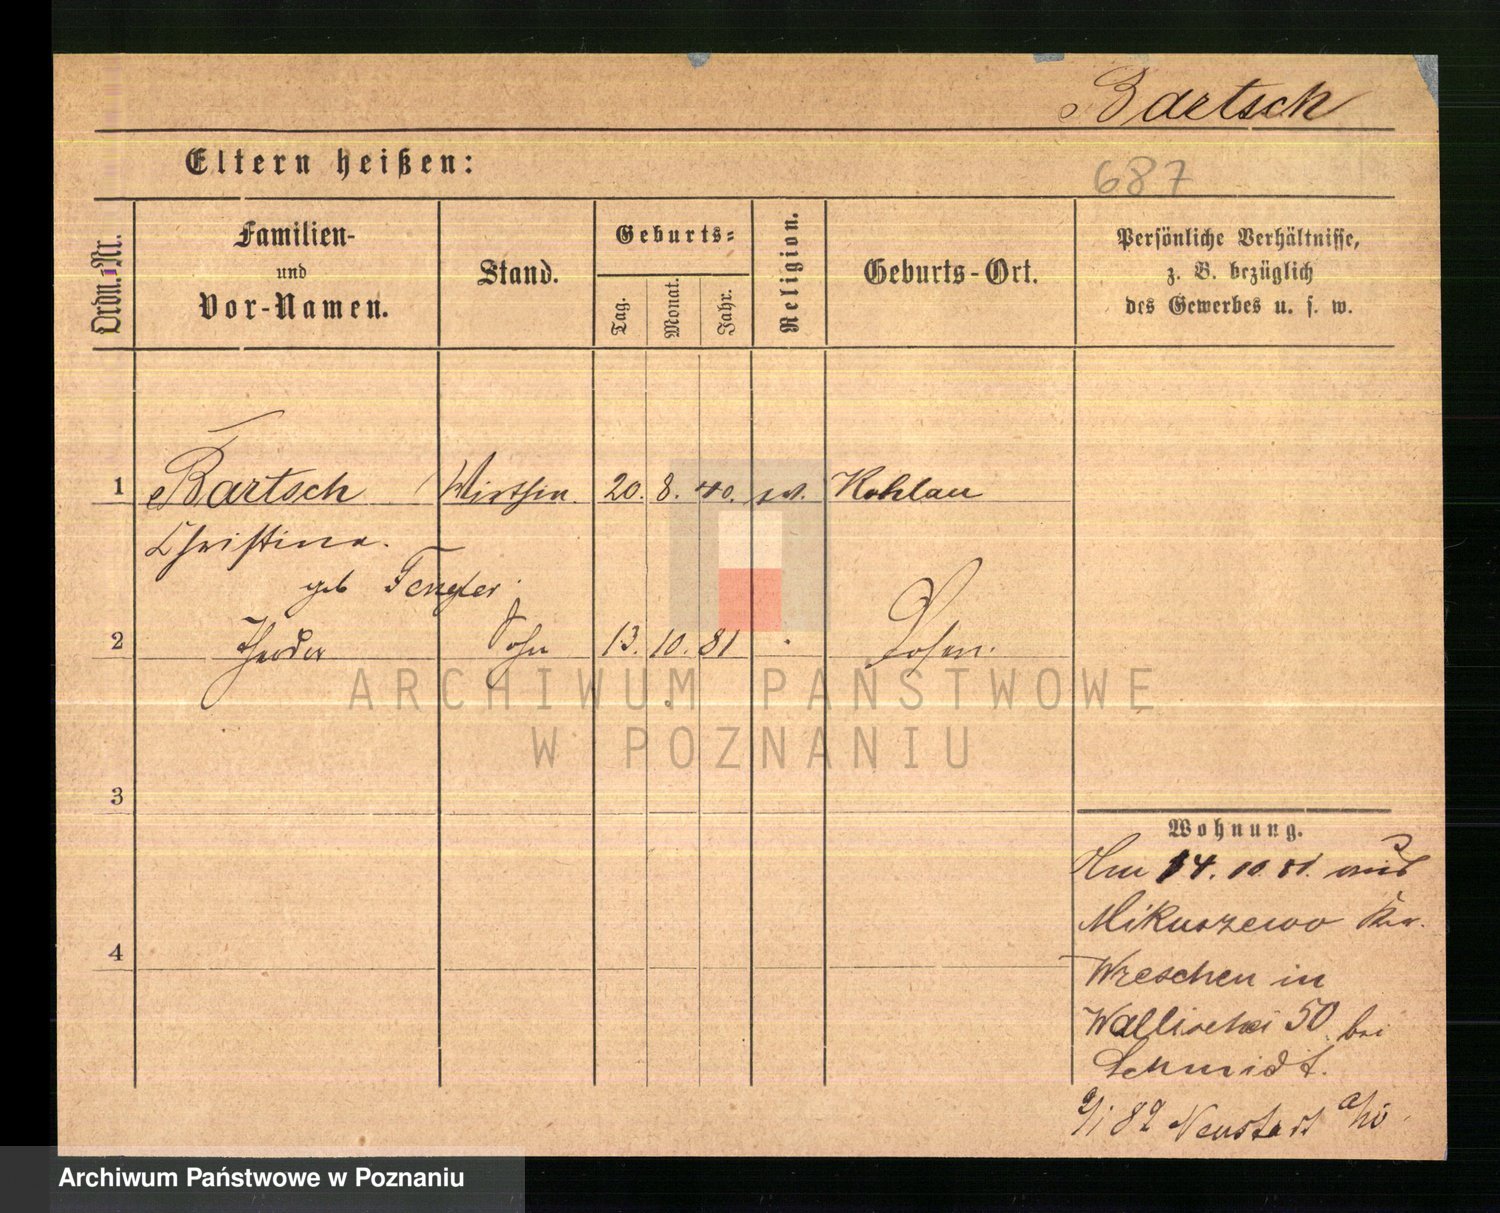 Bartsch
Eltern heißen:
687
Ordn.-Nr.
Familien-
und
Vor-Namen.
Stand.
Geburts-
Tag.
Monat.
Jahr.
Religion.
Geburts-Ort.
Persönliche Verhältnisse,
z. B. bezüglich
des Gewerbes u. s. w.
1 Bartsch Wirthin 20. 8. 40. Kohlau
Christina.
geb Fengler
2 Theodor Sohn 13. 10. 81 Posen.
3
4
Wohnung.
14. 10. 81. aus
Mikuszewo Kr.
Wreschen in
Wallischei 50 bei
Schmidt.
82 Neustadt
ARCHIWUM PAŃSTWOWE
W POZNANIU
Archiwum Państwowe w Poznaniu